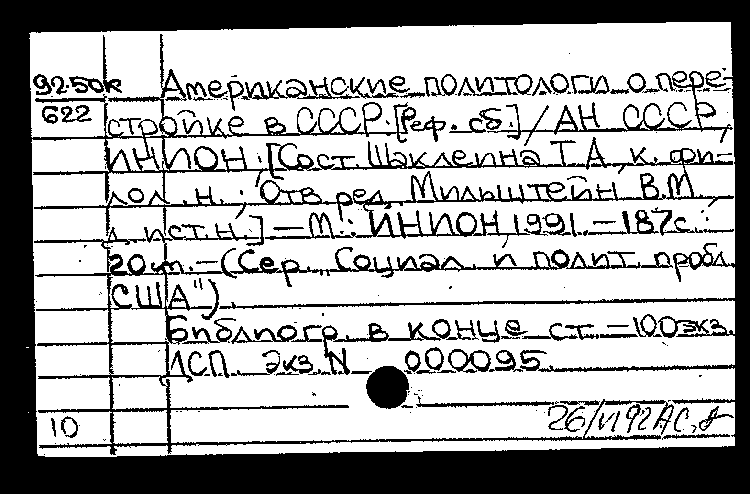 92-50к Американские политологи о пере-
622 стройке в СССР: [Реф. сб.] / АН СССР,
ИНИОН; [Сост. Шаклеина Т.А., к. фи-
лол. н.; Отв. ред. Мильштейн В.М.,
д. ист. н.] — М.: ИНИОН, 1991. — 187с.;
20 см. — (Сер. „Социал. и полит. пробл.
США").
Библиогр. в конце ст. — 100 экз.
ДСП Экз. N 000095.
10